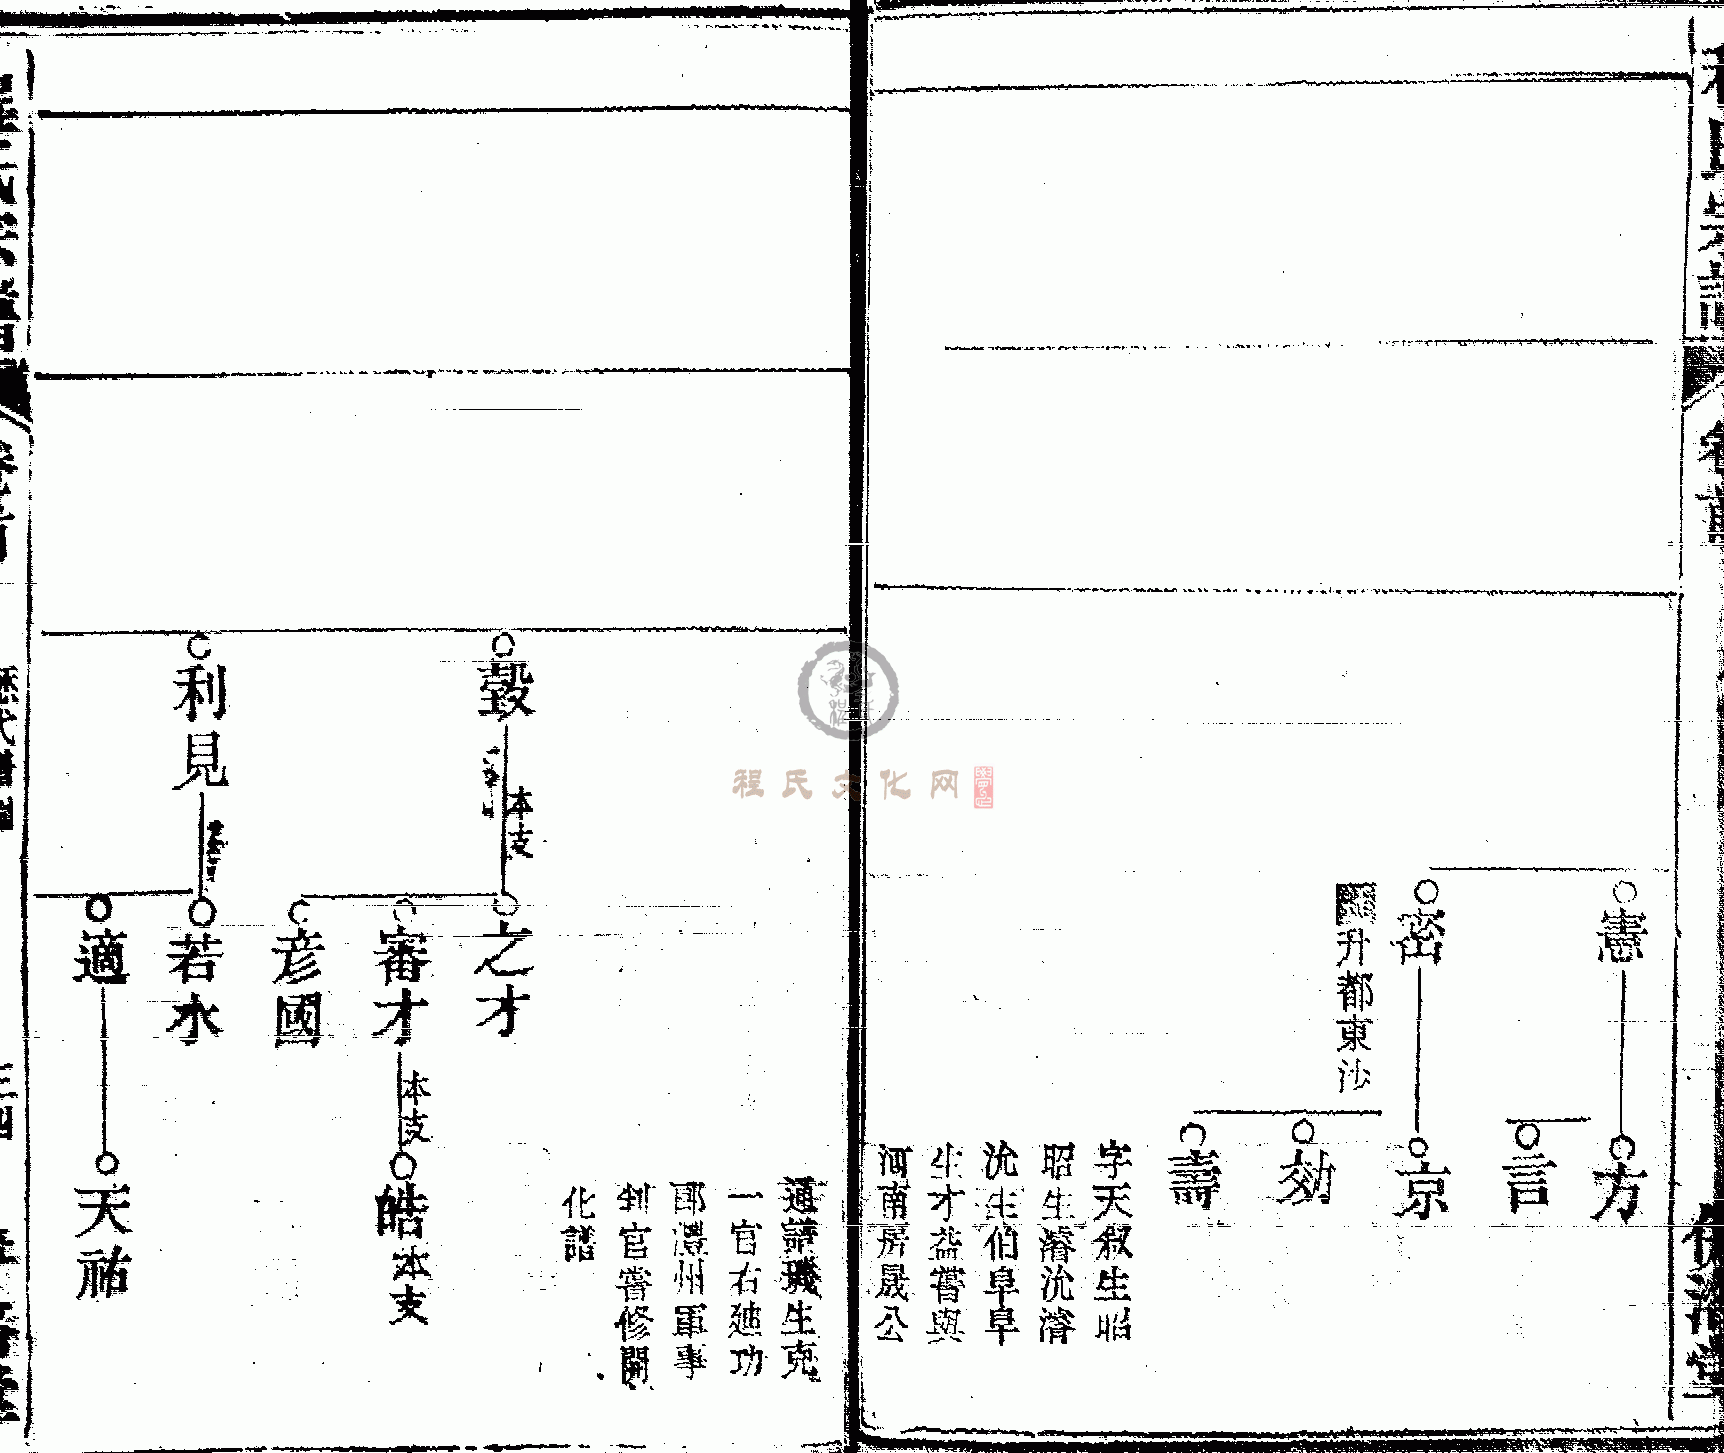 憲
方
言
密
京
升都東沙
効
壽
字天叙生昭
昭生濬沇濬
沇生伯阜阜
生才益嘗與
河南房晟公
通譜璣生克
一官右迪功
郎澧州軍事
判官嘗修開
化譜
瑴
本支
之才
審才
本支
皓
本支
彦國
利見
若水
適
天祐
歷代譜圖
三四
程氏文化网